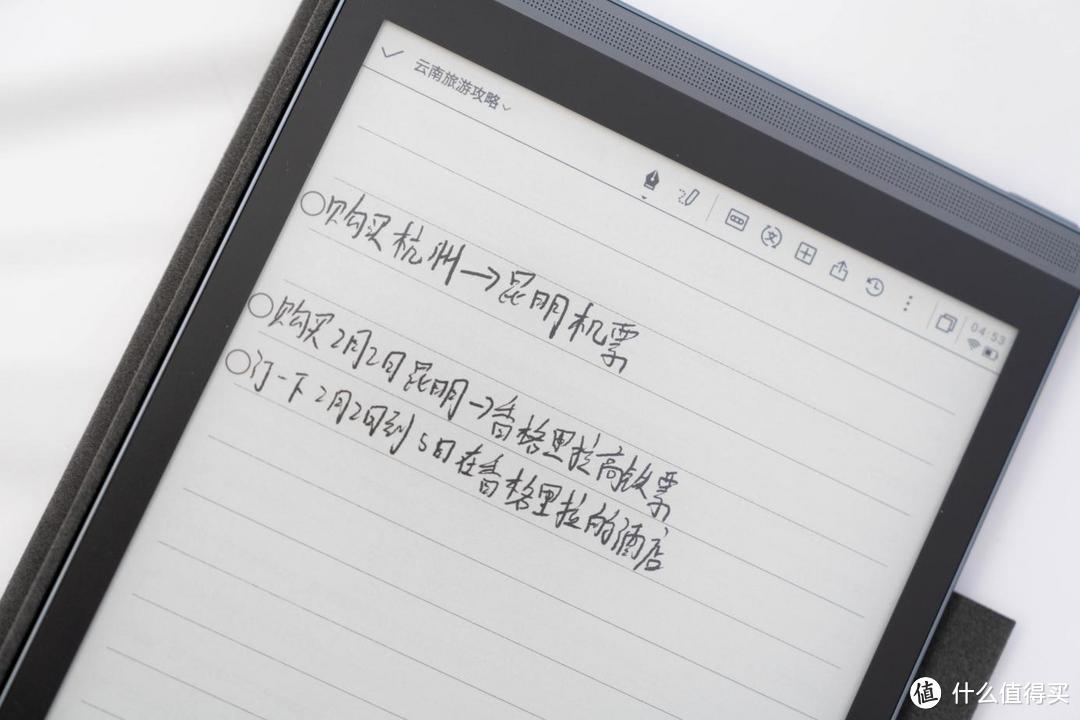 云南旅游攻略
04:53
○购买杭州→昆明机票
○购买2月2日昆明→香格里拉高铁票
○订一下2月2日到5日在香格里拉的酒店
值 什么值得买